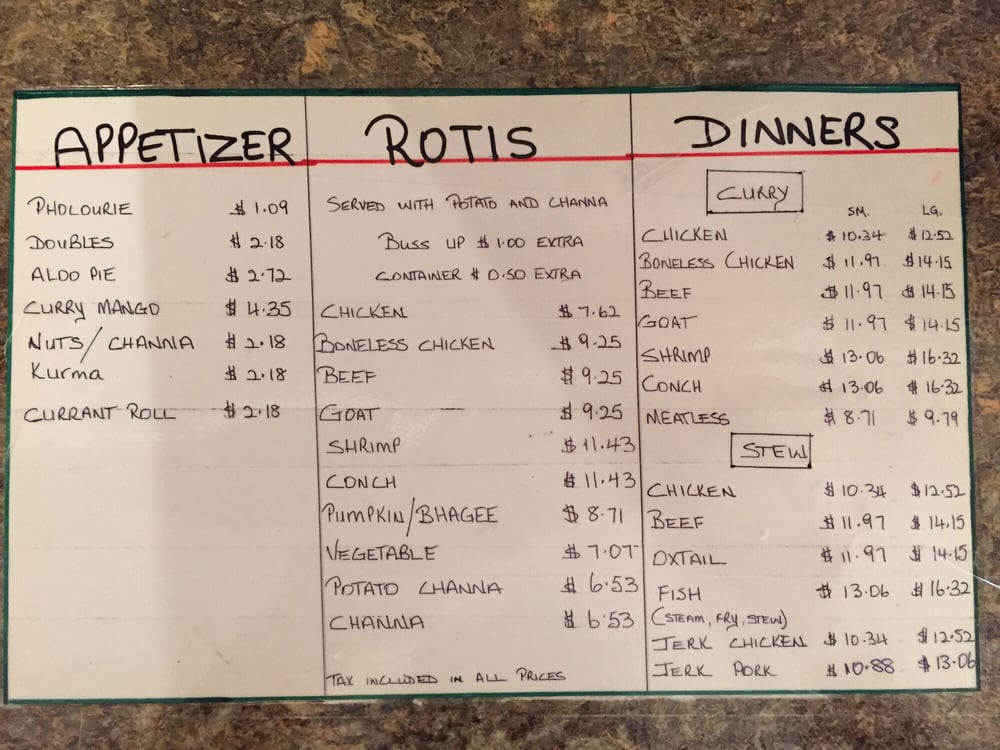 APPETIZER
PHOLOURIE $ 1.09
DOUBLES $ 2.18
ALOO PIE $ 2.72
CURRY MANGO $ 4.35
NUTS/CHANNA $ 2.18
Kurma $ 2.18
CURRANT ROLL $ 2.18
ROTIS
SERVED WITH POTATO AND CHANNA
BUSS UP $ 1.00 EXTRA
CONTAINER $ 0.50 EXTRA
CHICKEN $ 7.62
BONELESS CHICKEN $ 9.25
BEEF $ 9.25
GOAT $ 9.25
SHRIMP $ 11.43
CONCH $ 11.43
PUMPKIN/BHAGEE $ 8.71
VEGETABLE $ 7.07
POTATO CHANNA $ 6.53
CHANNA $ 6.53
TAX INCLUDED IN ALL PRICES
DINNERS
CURRY
SM. LG.
CHICKEN $ 10.34 $ 12.52
BONELESS CHICKEN $ 11.97 $ 14.15
BEEF $ 11.97 $ 14.15
GOAT $ 11.97 $ 14.15
SHRIMP $ 13.06 $ 16.32
CONCH $ 13.06 $ 16.32
MEATLESS $ 8.71 $ 9.79
STEW
CHICKEN $ 10.34 $ 12.52
BEEF $ 11.97 $ 14.15
OXTAIL $ 11.97 $ 14.15
FISH $ 13.06 $ 16.32
(STEAM, FRY, STEW)
JERK CHICKEN $ 10.34 $ 12.52
JERK PORK $ 10.88 $ 13.06